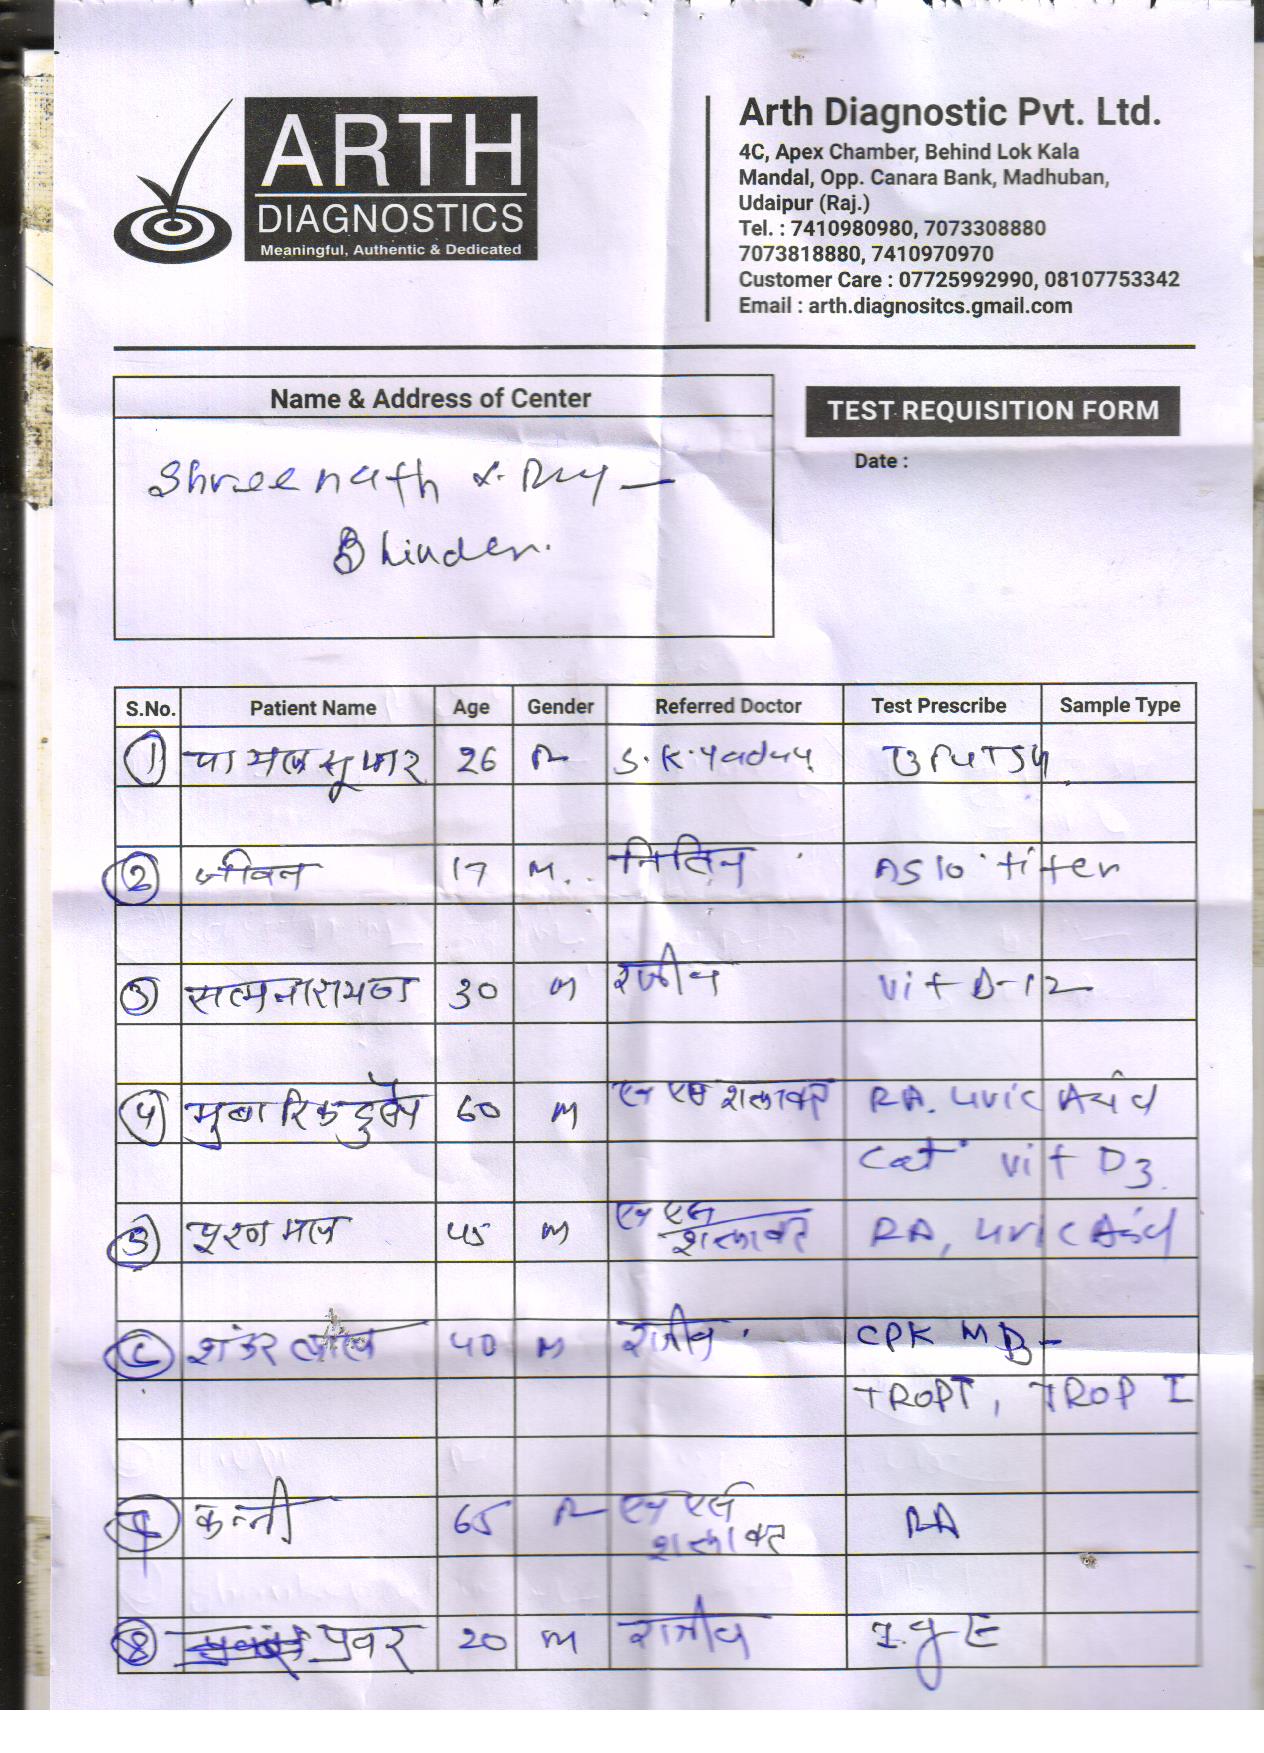 ARTH
DIAGNOSTICS
Meaningful, Authentic & Dedicated
Arth Diagnostic Pvt. Ltd.
4C, Apex Chamber, Behind Lok Kala
Mandal, Opp. Canara Bank, Madhuban,
Udaipur (Raj.)
Tel. : 7410980980, 7073308880
7073818880, 7410970970
Customer Care : 07725992990, 08107753342
Email : arth.diagnositcs.gmail.com
Name & Address of Center
TEST REQUISITION FORM
Date :
Shreenath X-Ray —
Bhinder.
S.No. Patient Name Age Gender Referred Doctor Test Prescribe Sample Type
1 26 F S.K.Yadav
2 जीवन 17 M. नितिन ASlO titer
3 सत्यनारायण 30 M राजीव Vit B-12
4 मुबारिक हुसैन 60 M एन एस शक्तावत RA. Uric Acid
Cal Vit D3.
5 पूरणमल 45 M एन एस शक्तावत RA, Uric Acid
6 शंकर लाल 40 M राजीव CPK MB -
TROPT, TROP I
7 65 F एन एस शक्तावत RA
8 20 M राजीव IgE